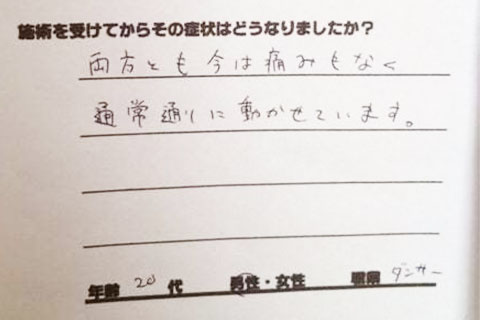 施術を受けてからその症状はどうなりましたか？
両方とも今は痛みもなく
通常通りに動かせています。
年齢 20 代 男性・女性 職業 ダンサー